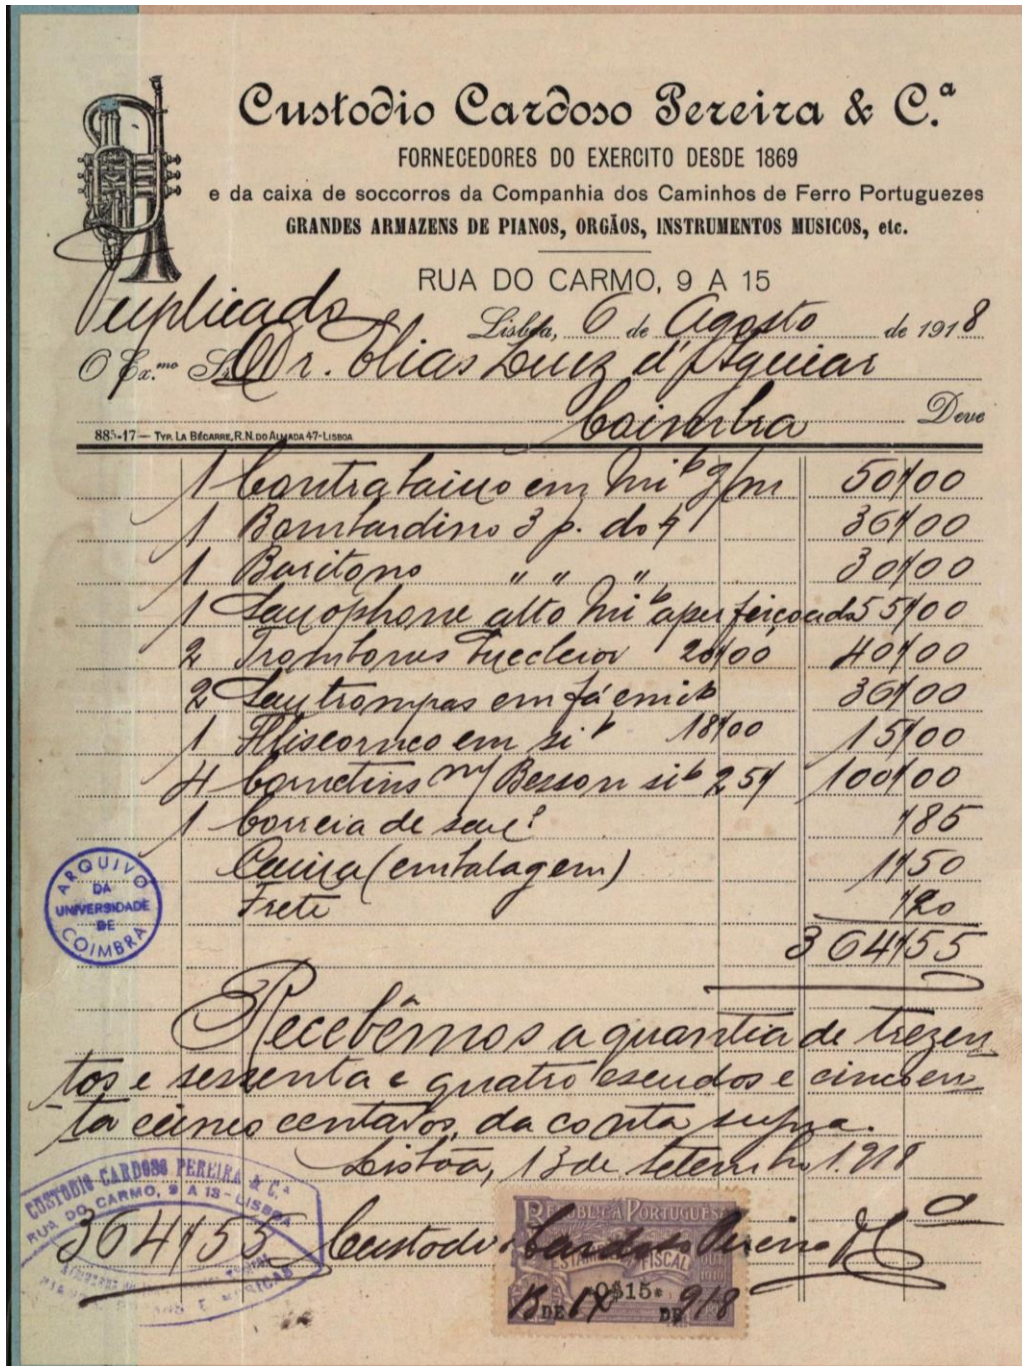 Custodio Cardoso Pereira & C.ª
FORNECEDORES DO EXERCITO DESDE 1869
e da caixa de soccorros da Companhia dos Caminhos de Ferro Portuguezes
GRANDES ARMAZENS DE PIANOS, ORGÃOS, INSTRUMENTOS MUSICOS, etc.
RUA DO CARMO, 9 A 15
Duplicado
Lisboa, 6 de Agosto de 1918
O Ex.mo Sr. Dr. Elias Luiz d'Aguiar
Coimbra Deve
885-17 — TYP. LA BÉCARRE, R. N. DO ALMADA 47-LISBOA
1 Contrabaixo em mi b g/m 50$00
1 Bombardino 3 p. do 4 36$00
1 Baritono " " " 30$00
1 Saxophone alto mi b aperfeiçoado 55$00
2 Trombones 20$00 40$00
2 Saxtrompas em fá e mi b 36$00
1 Fliscorne em si b 18$00 15$00
4 Cornetins m/ Besson si b 25$ 100$00
1 Correia de sax. $85
Caixa (embalagem) 1$50
Frete $20
364$55
ARQUIVO
DA
UNIVERSIDADE
DE
COIMBRA
Recebêmos a quantia de trezen
tos e sessenta e quatro escudos e cincoen
ta cinco centavos, da conta supra.
Lisbôa, 13 de setembro 1.918
CUSTODIO CARDOSO PEREIRA & C.ª
RUA DO CARMO, 9 A 13 - LISBOA
364$55 Custodio Cardoso Pereira & Cª
REPUBLICA PORTUGUESA
ESTAMPILHA FISCAL
0$15
13 DE IX DE 918